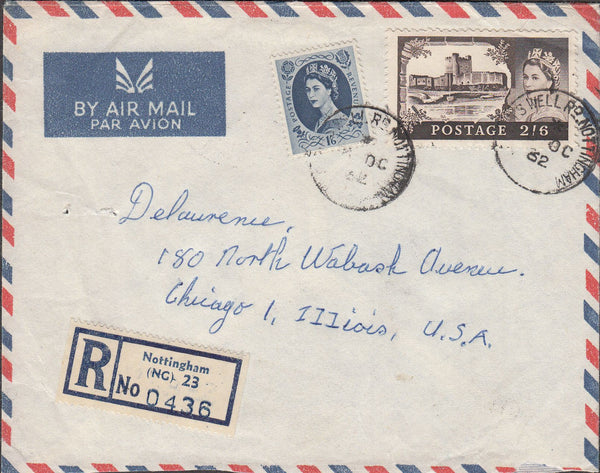 BY AIR MAIL
PAR AVION
POSTAGE
REVENUE
1/6
POSTAGE 2'/6
RD. NOTTINGHAM
OC
62
S WELL RD. NOTTINGHAM
OC
62
Delaurence,
180 North Wabash Avenue.
Chicago 1, IIIiois, U.S.A.
R
Nottingham
(NG) 23
No 0436